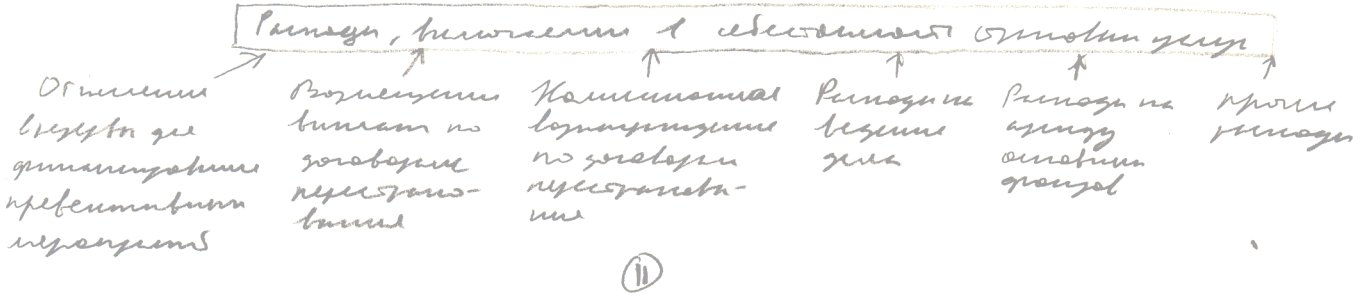 Расходы, включаемые в себестоимость страховых услуг
Отчисления
в резервы для
финансирования
превентивных
мероприятий
Возмещение
выплат по
договорам
перестрахо-
вания
Комиссионное
вознаграждение
по договорам
перестрахова-
ния
Расходы на
ведение
дела
Расходы на
аренду
основных
фондов
прочие
расходы
11